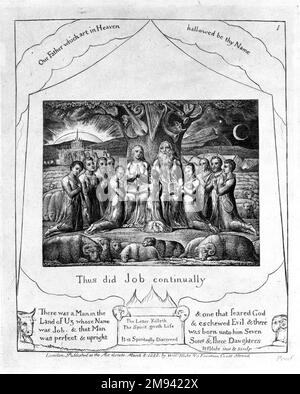 1
Our Father which art in Heaven
hallowed be thy Name
Thus did Job continually
There was a Man in the
Land of Uz whose Name
was Job. & that Man
was perfect & upright
The Letter Killeth
The Spirit giveth Life
It is Spiritually Discerned
& one that feared God
& eschewed Evil & there
was born unto him Seven
Sons & Three Daughters
WBlake inv & sculp
London, Published as the Act directs March 8 1825 by Will Blake N3 Fountain Court Strand
Proof
alamy
Image ID: 2M9422X
www.alamy.com